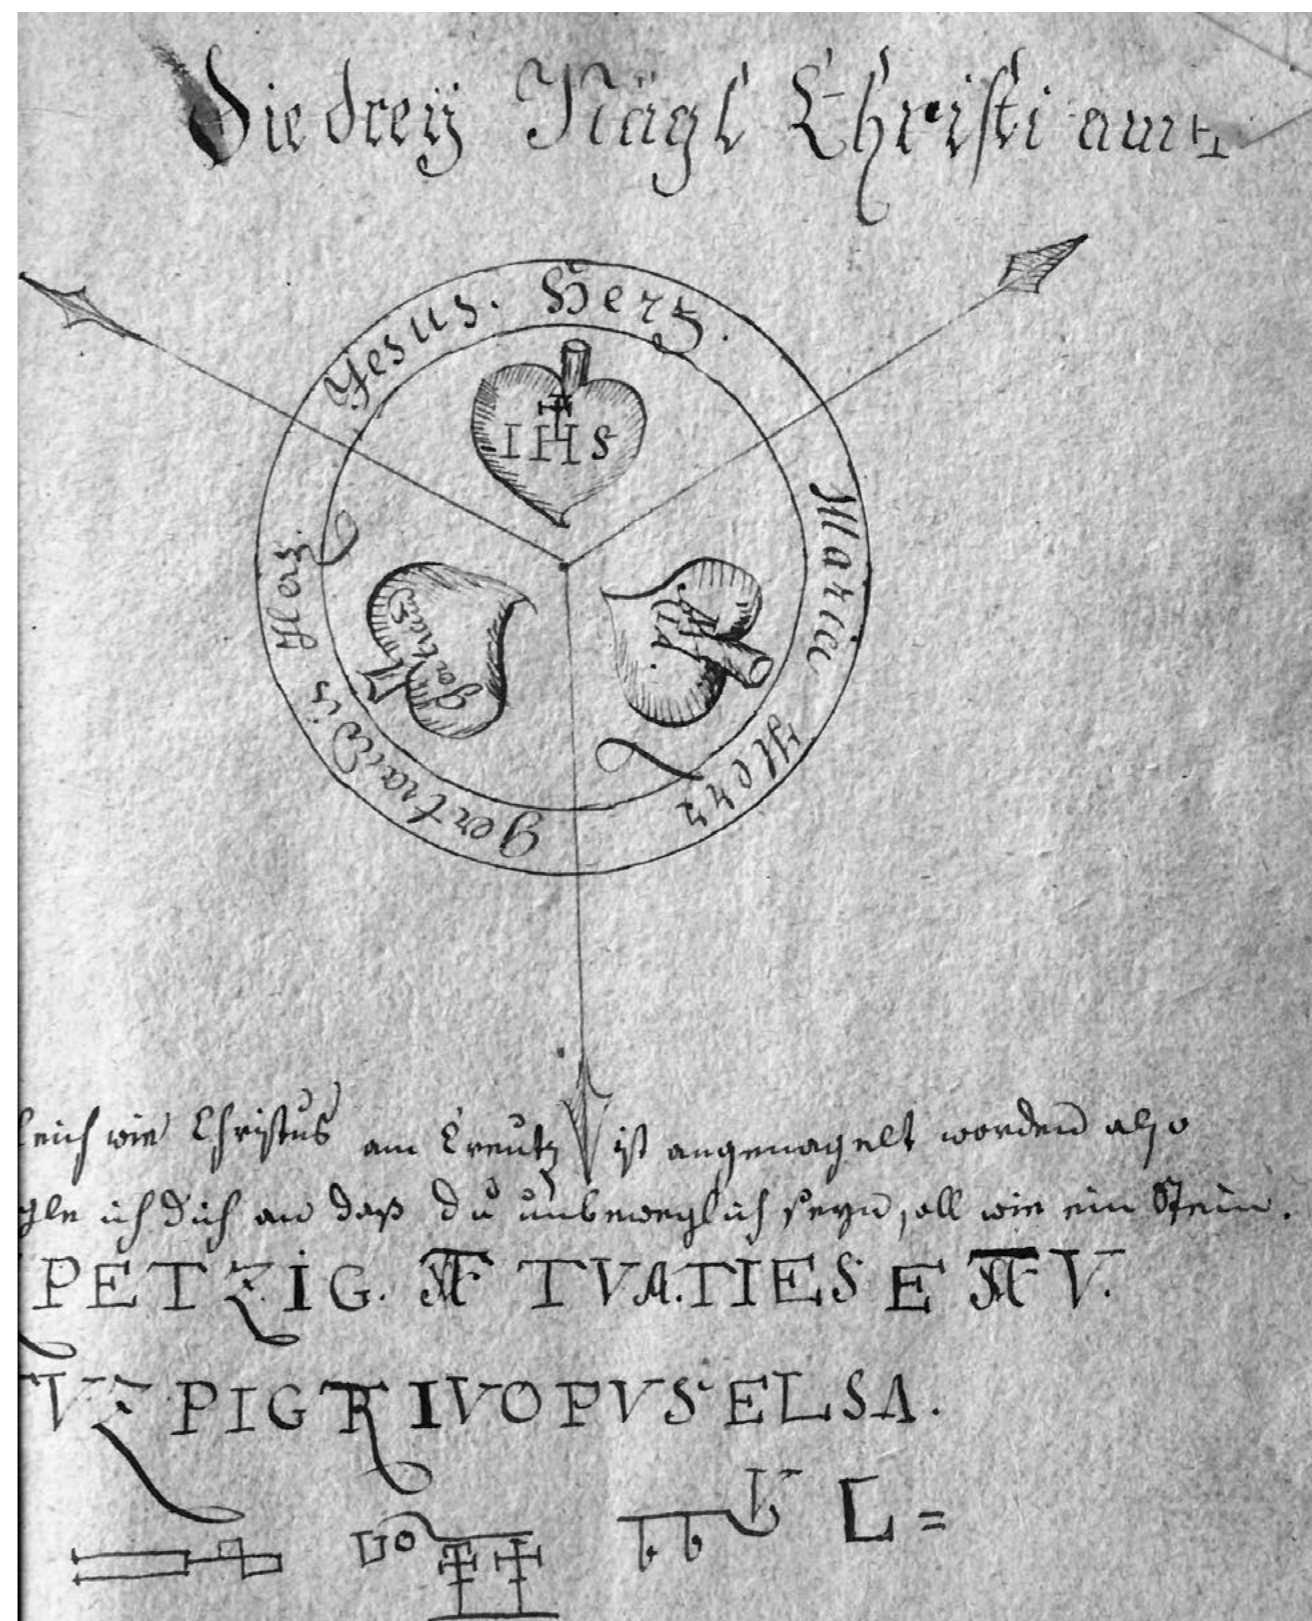 Die dreÿ Nägl Christi am
Jesus. Herz.
IHS
Mariæ Herz
MA
Gertraudis Herz.
Gertraud
leich wie Christus am Creutz ist angenagelt worden also
gle ich dich an daß du unbeweglich seyn soll wie ein Stein.
PETZIG. TVA.TIES E V.
VZ PIGRIVOPVS ELSA.
L =